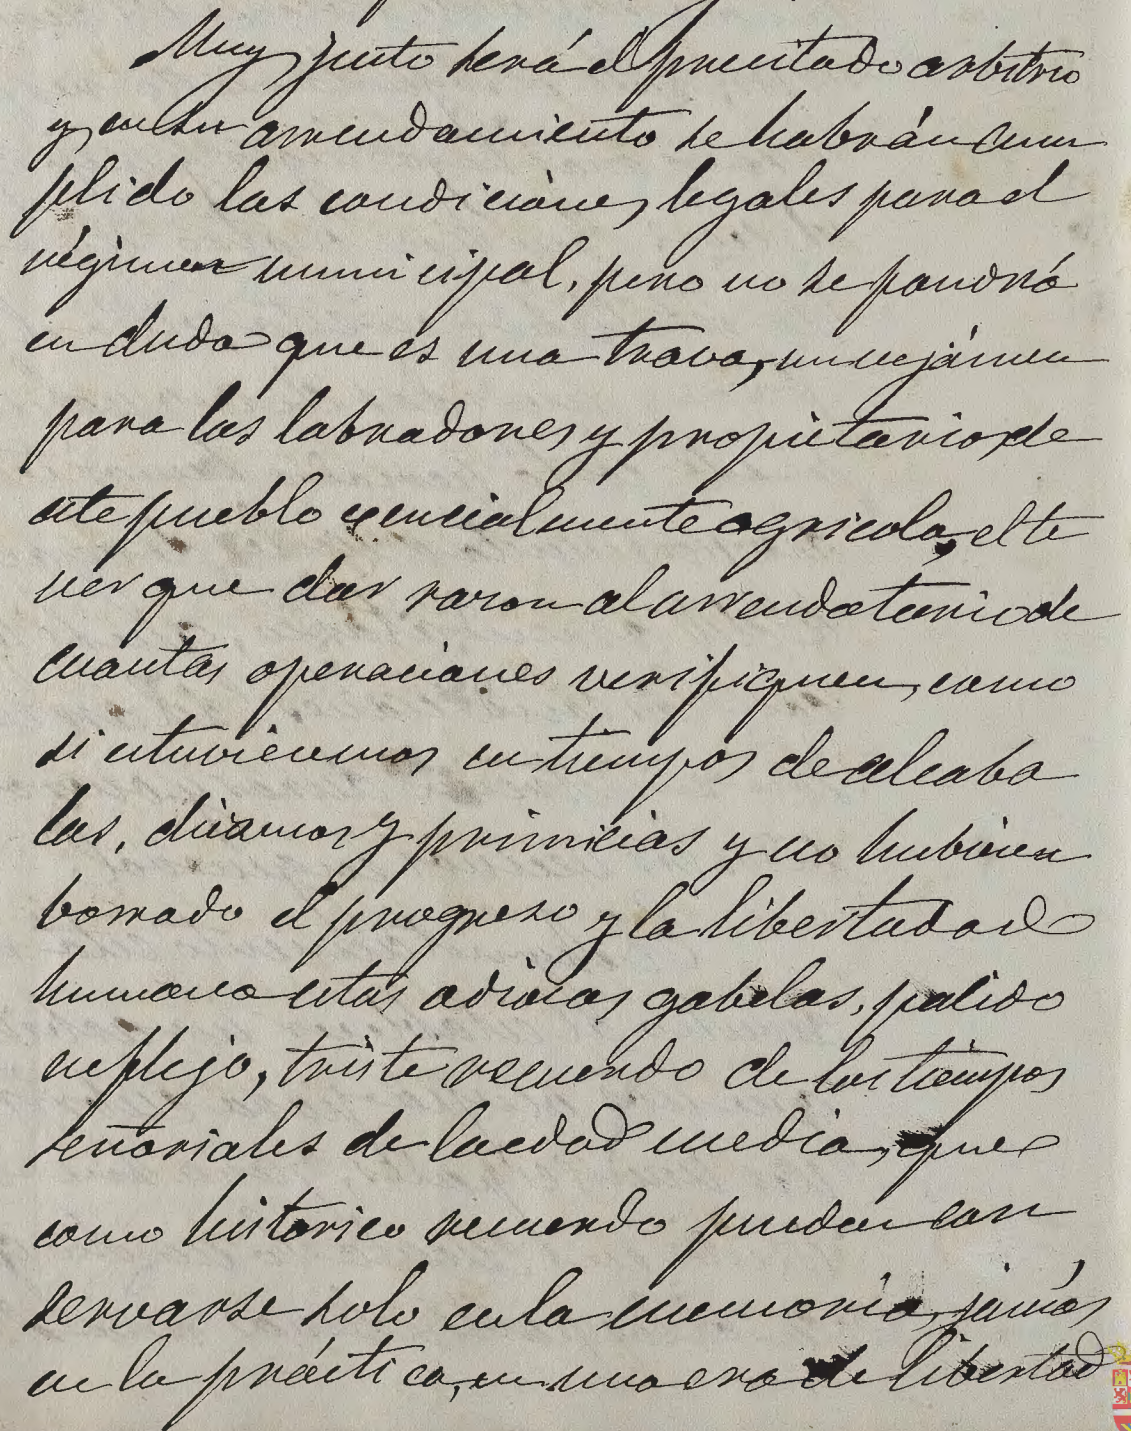 Muy justo será el precitado arbitrio
y en su arrendamiento se habrán cum
plido las condiciones legales para el
régimen municipal, pero no se pondrá
en duda que es una trava, un vejámen
para los labradores y propietarios de
este pueblo esencialmente agricola, el te
ner que dar razon al arrendatario de
cuantas operaciones verifiquen, como
si estuvieramos en tiempos de alcaba
las, diezmos y primicias y no hubieran
borrado el progreso y la libertad
humana estas odiosas gabelas, palido
reflejo, triste recuerdo de los tiempos
señoriales de la edad media, que
como historico recuerdo pueden con
servarse solo en la memoria, jamás
en la práctica, en una era de libertad